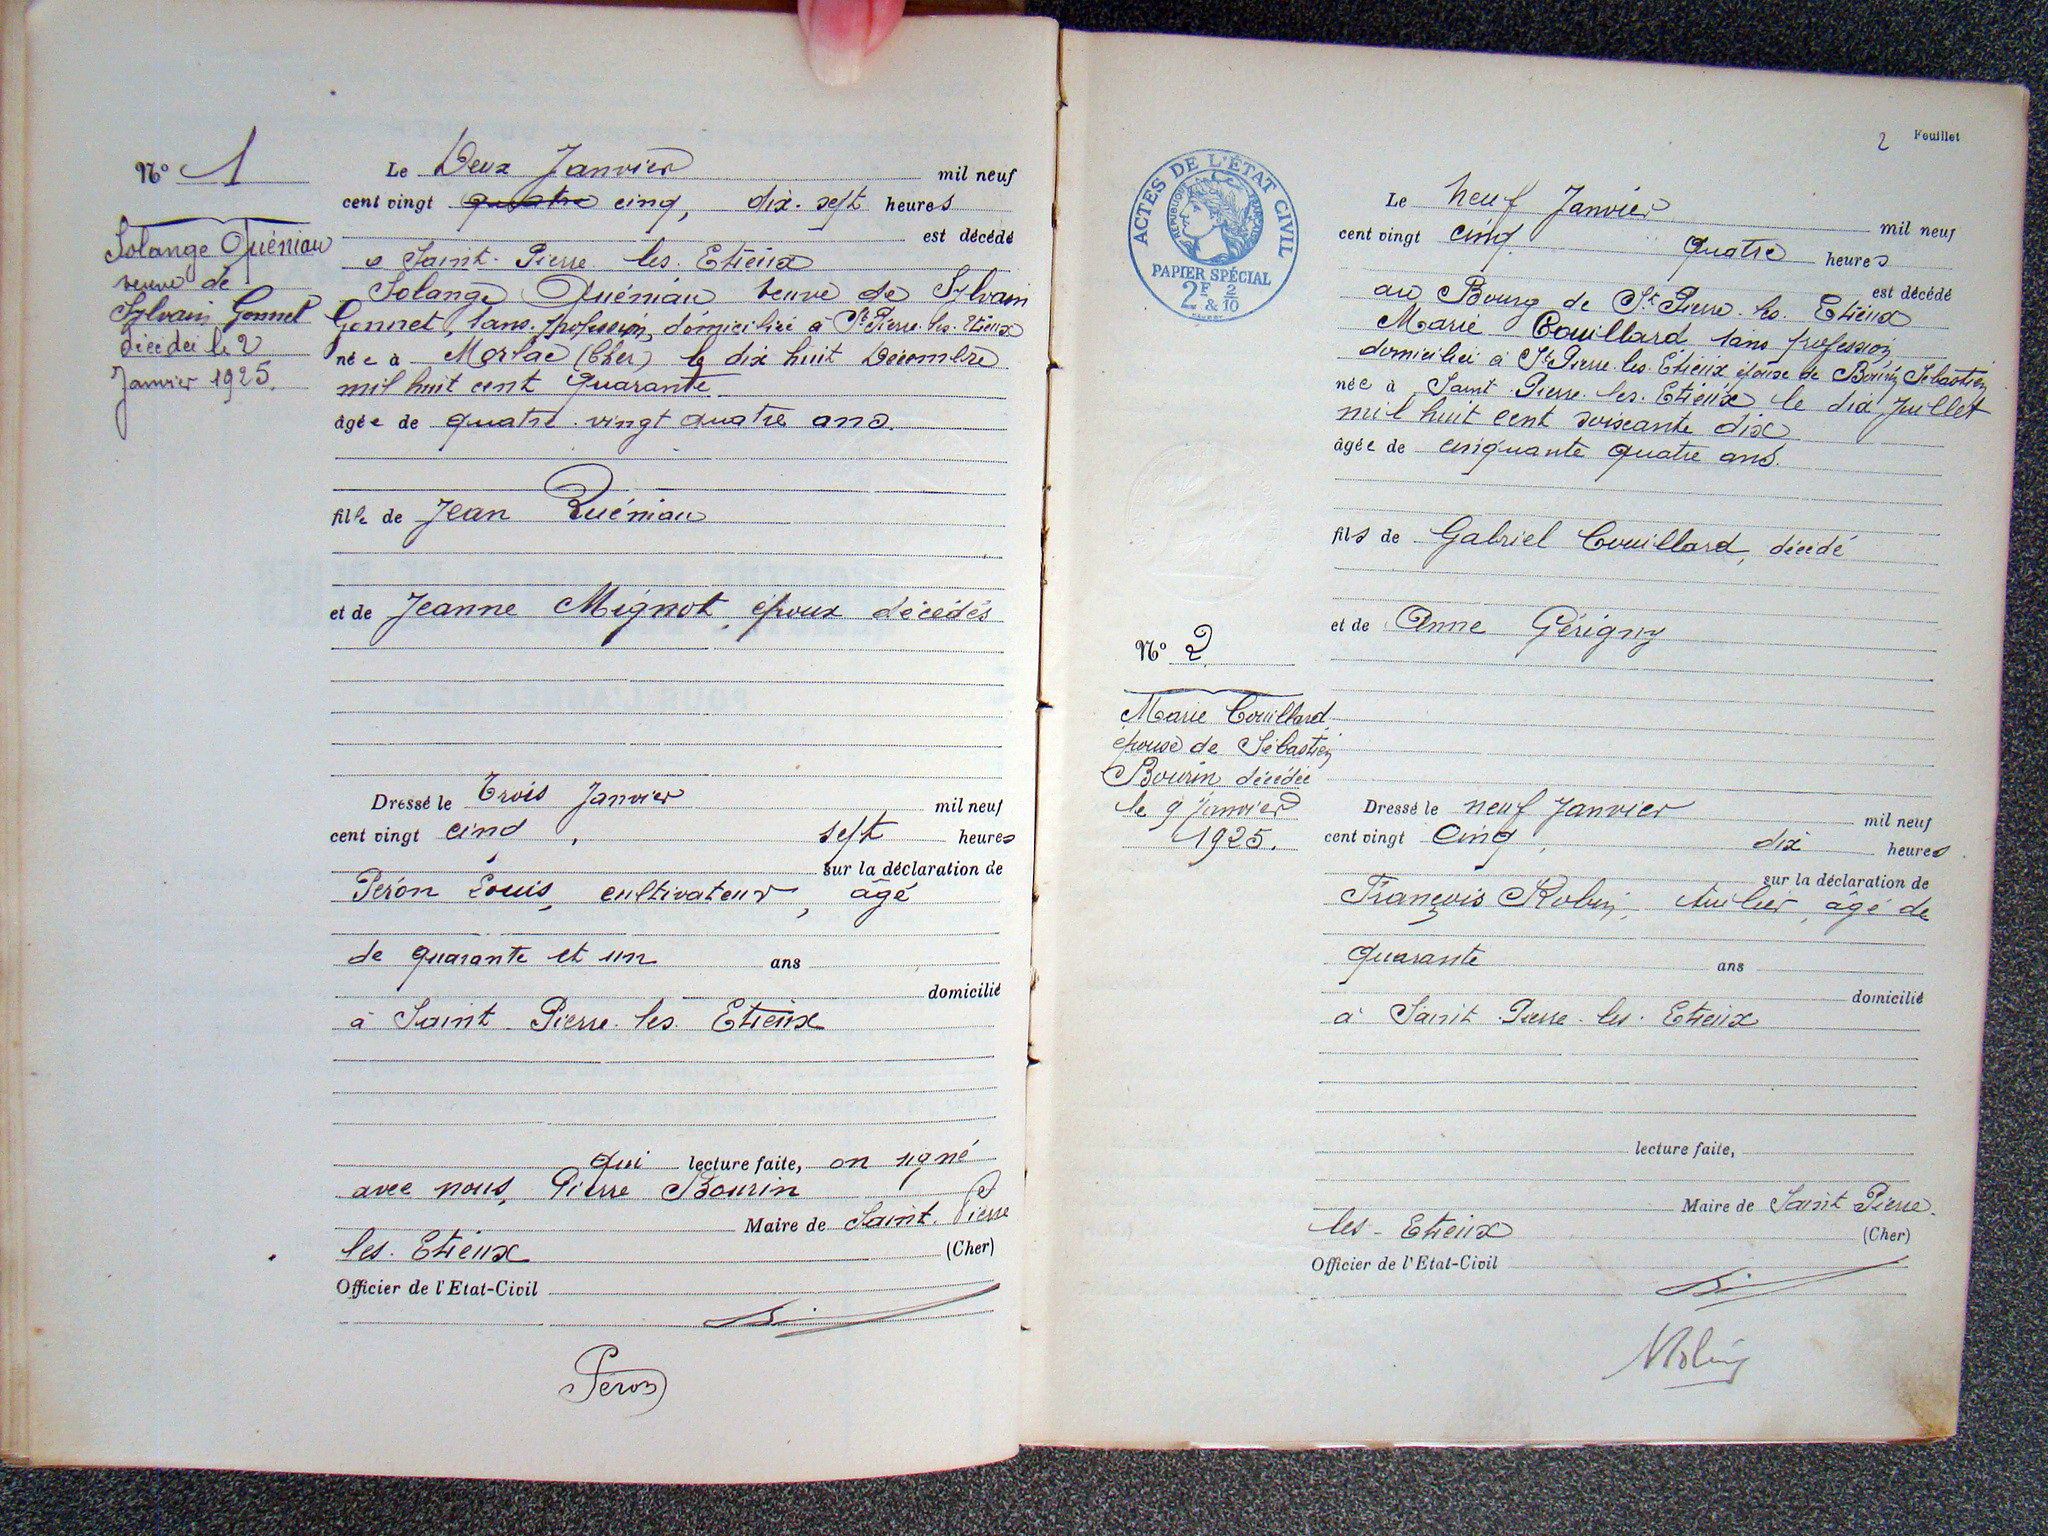 N° 1
Solange Quéniau
veuve de
Sylvain Gonnet
décédée le 2
Janvier 1925.
Le Deux Janvier mil neuf
cent vingt quatre cinq, dix-sept heures
est décédé
à Saint-Pierre-les-Etieux
Solange Quéniau veuve de Sylvain
Gonnet, sans profession, domiciliée à St Pierre-les-Etieux
née à Morlac (Cher) le dix huit Décembre
mil huit cent quarante
âgée de quatre-vingt quatre ans.
fille de Jean Quéniau
et de Jeanne Mignot, époux décédés
Dressé le Trois Janvier mil neuf
cent vingt cinq, sept heures
sur la déclaration de
Péron Louis, cultivateur, âgé
de quarante et un ans
domicilié
à Saint-Pierre-les-Etieux
qui lecture faite, on signé
avec nous, Pierre Bourin
Maire de Saint-Pierre
les-Etieux (Cher)
Officier de l'Etat-Civil
Péron
2 Feuillet
ACTES DE L'ÉTAT CIVIL
RÉPUBLIQUE FRANÇAISE
PAPIER SPÉCIAL
2F & 2/10
N° 2
Marie Couillard
épouse de Sébastien
Bourin décédée
le 9 Janvier
1925.
Le neuf Janvier mil neuf
cent vingt cinq quatre heures
est décédé
au Bourg de St Pierre-les-Etieux
Marie Couillard sans profession,
domiciliée à St Pierre-les-Etieux épouse de Bourin Sébastien
née à Saint-Pierre-les-Etieux le dix Juillet
mil huit cent soixante dix
âgée de cinquante quatre ans.
fils de Gabriel Couillard, décédé
et de Anne Gérigny
Dressé le neuf Janvier mil neuf
cent vingt cinq, dix heures
sur la déclaration de
François Robin, tuilier, âgé de
quarante ans
domicilié
à Saint-Pierre-les-Etieux
lecture faite,
Maire de Saint Pierre-
les-Etieux (Cher)
Officier de l'Etat-Civil
Robin